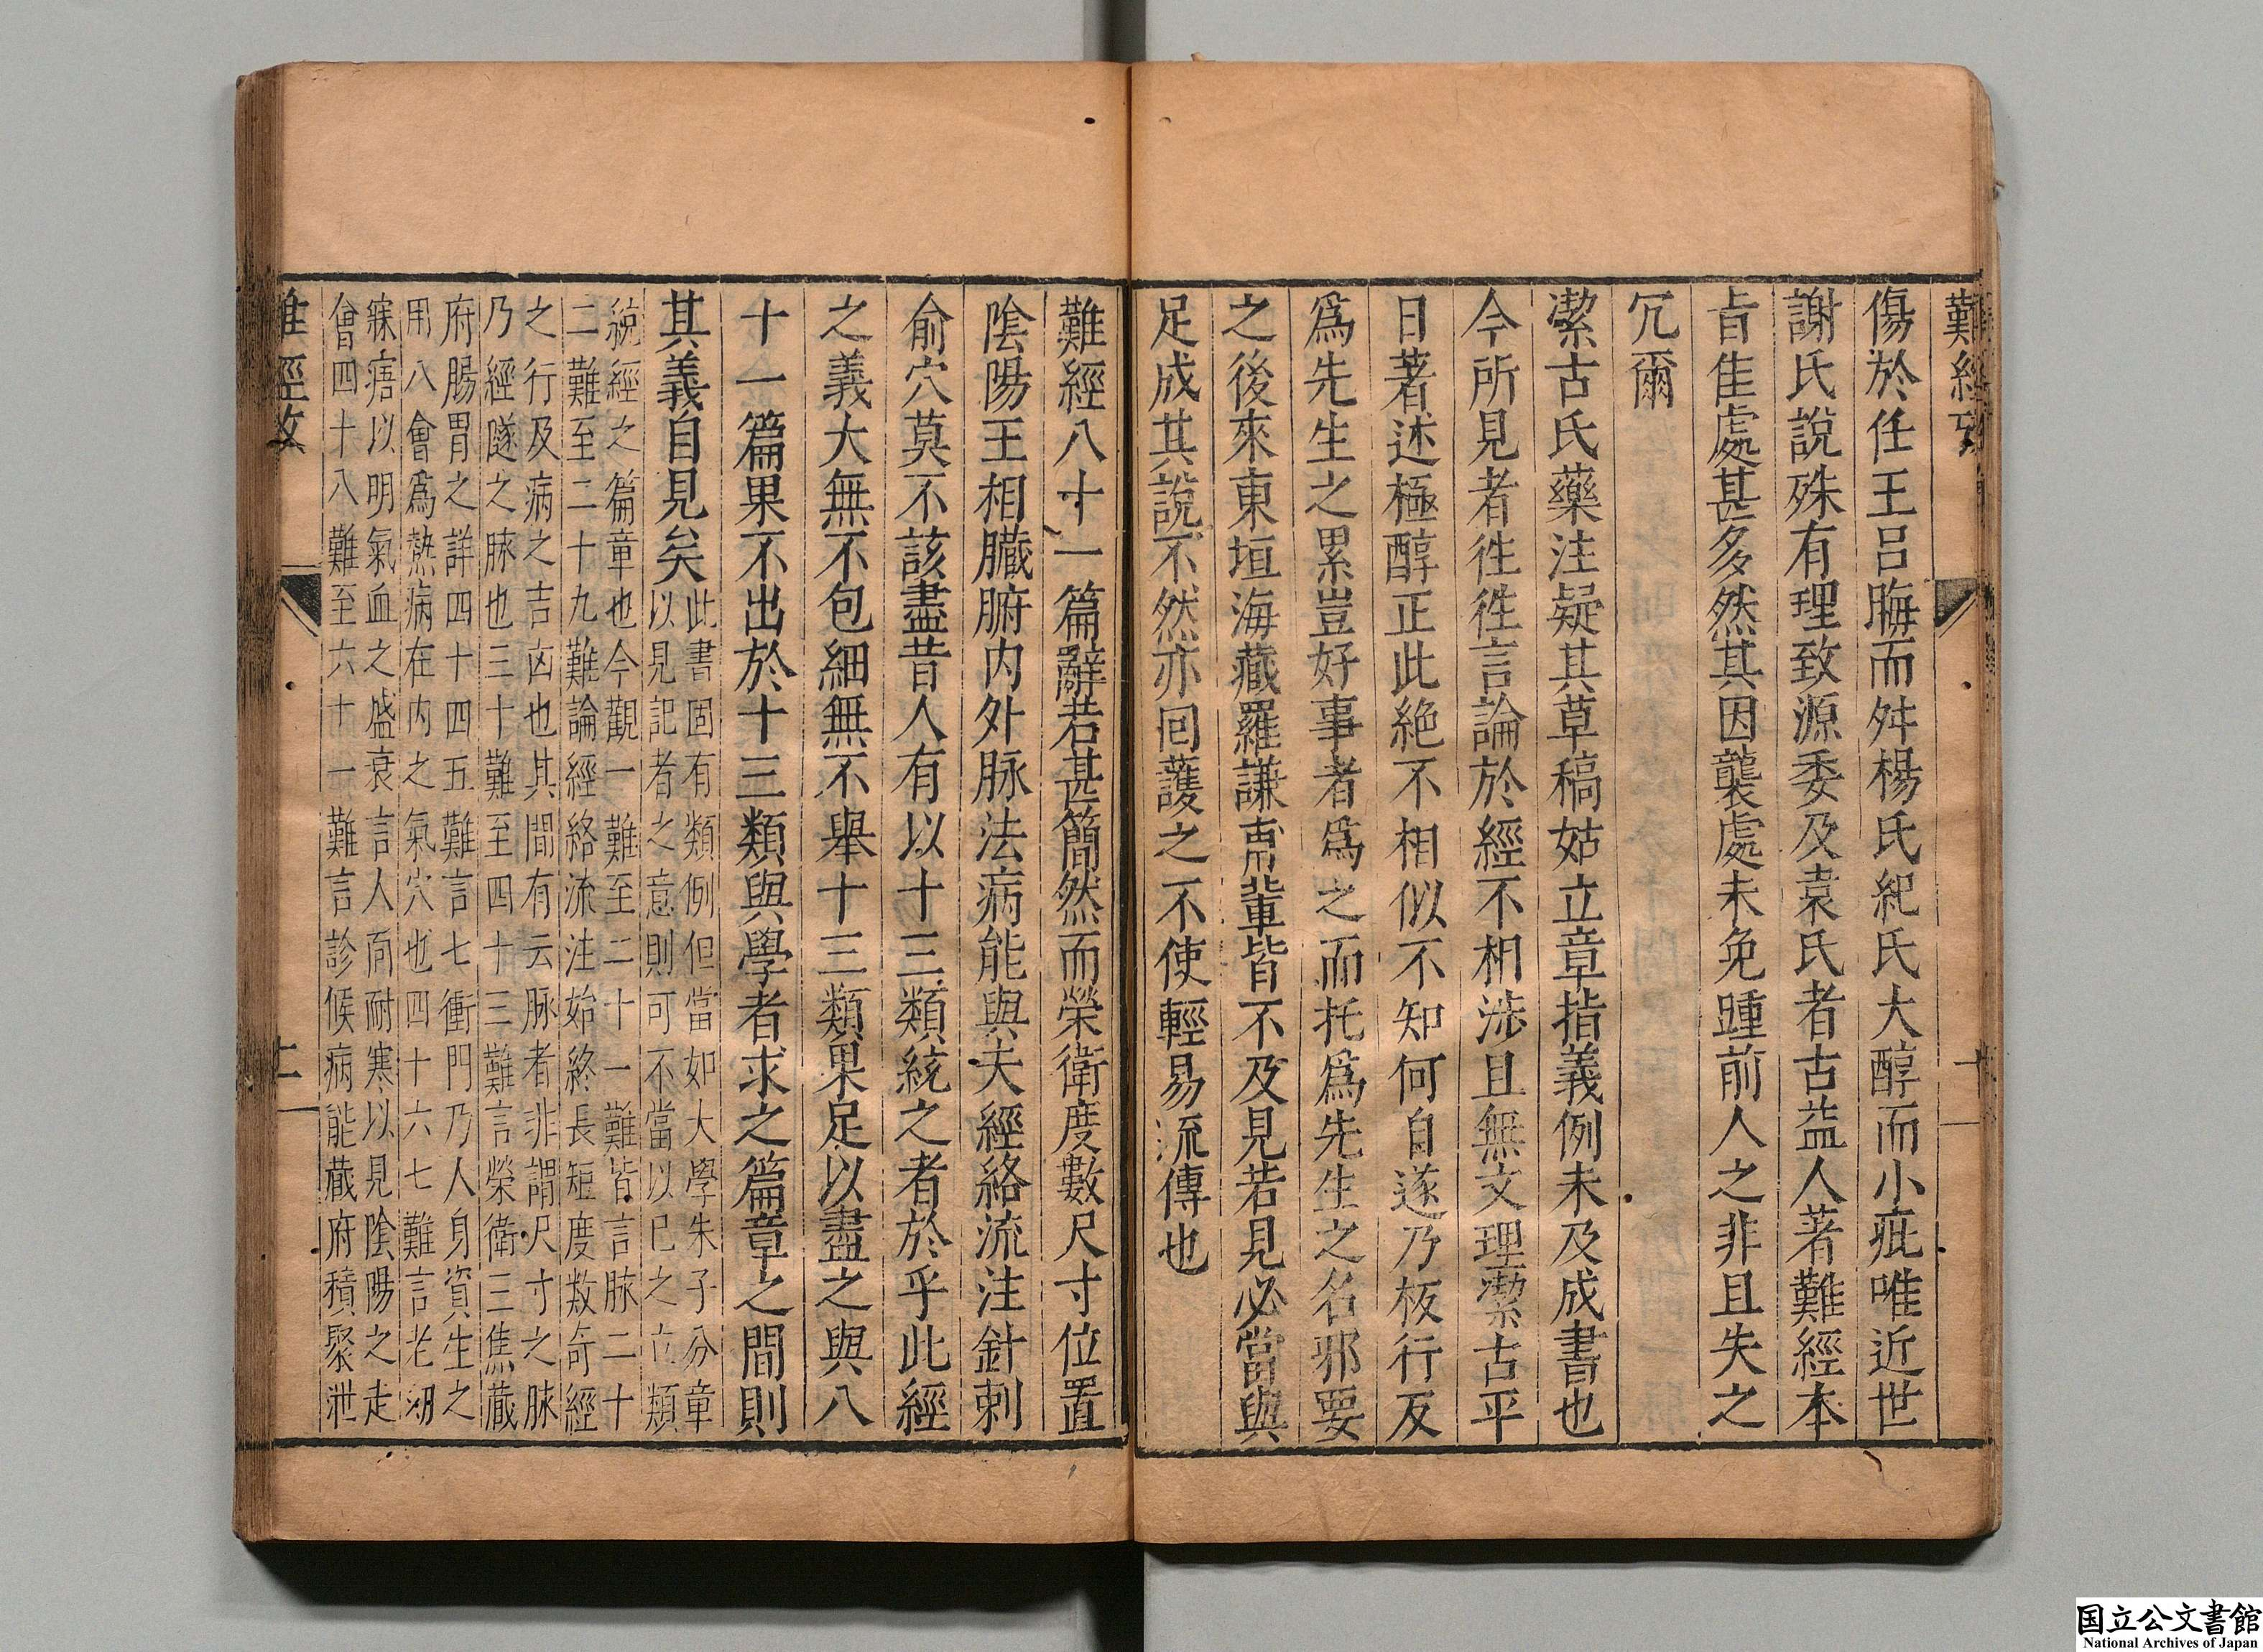 難經攷
十
傷於任王呂晦而舛楊氏紀氏大醇而小疵唯近世
謝氏說殊有理致源委及袁氏者古益人著難經本
旨佳處甚多然其因襲處未免踵前人之非且失之
冗爾
潔古氏藥注疑其草稿姑立章指義例未及成書也
今所見者徃徃言論於經不相涉且無文理潔古平
日著述極醇正此絶不相似不知何自遂乃板行反
爲先生之累豈好事者爲之而托爲先生之名邪要
之後來東垣海藏羅謙甫輩皆不及見若見必當與
足成其說不然亦回護之不使輕易流傳也
難經八十一篇辭若甚簡然而榮衛度數尺寸位置
陰陽王相臓腑内外脉法病能與夫經絡流注針刺
俞穴莫不該盡昔人有以十三類統之者於乎此經
之義大無不包細無不舉十三類果足以盡之與八
十一篇果不出於十三類與學者求之篇章之間則
其義自見矣
此書固有類例但當如大學朱子分章
以見記者之意則可不當以已之立類
統經之篇章也今觀一難至二十一難皆言脉二十
二難至二十九難論經絡流注始終長短度数竒經
之行及病之吉凶也其間有云脉者非謂尺寸之脉
乃經隧之脉也三十難至四十三難言榮衛三焦蔵
府腸胃之詳四十四五難言七衝門乃人身資生之
用八會爲熱病在内之氣穴也四十六七難言老㓜
寐寤以明氣血之盛衰言人靣耐寒以見陰陽之走
會四十八難至六十一難言診候病能蔵府積聚泄
難經攷
十一
国立公文書館
National Archives of Japan